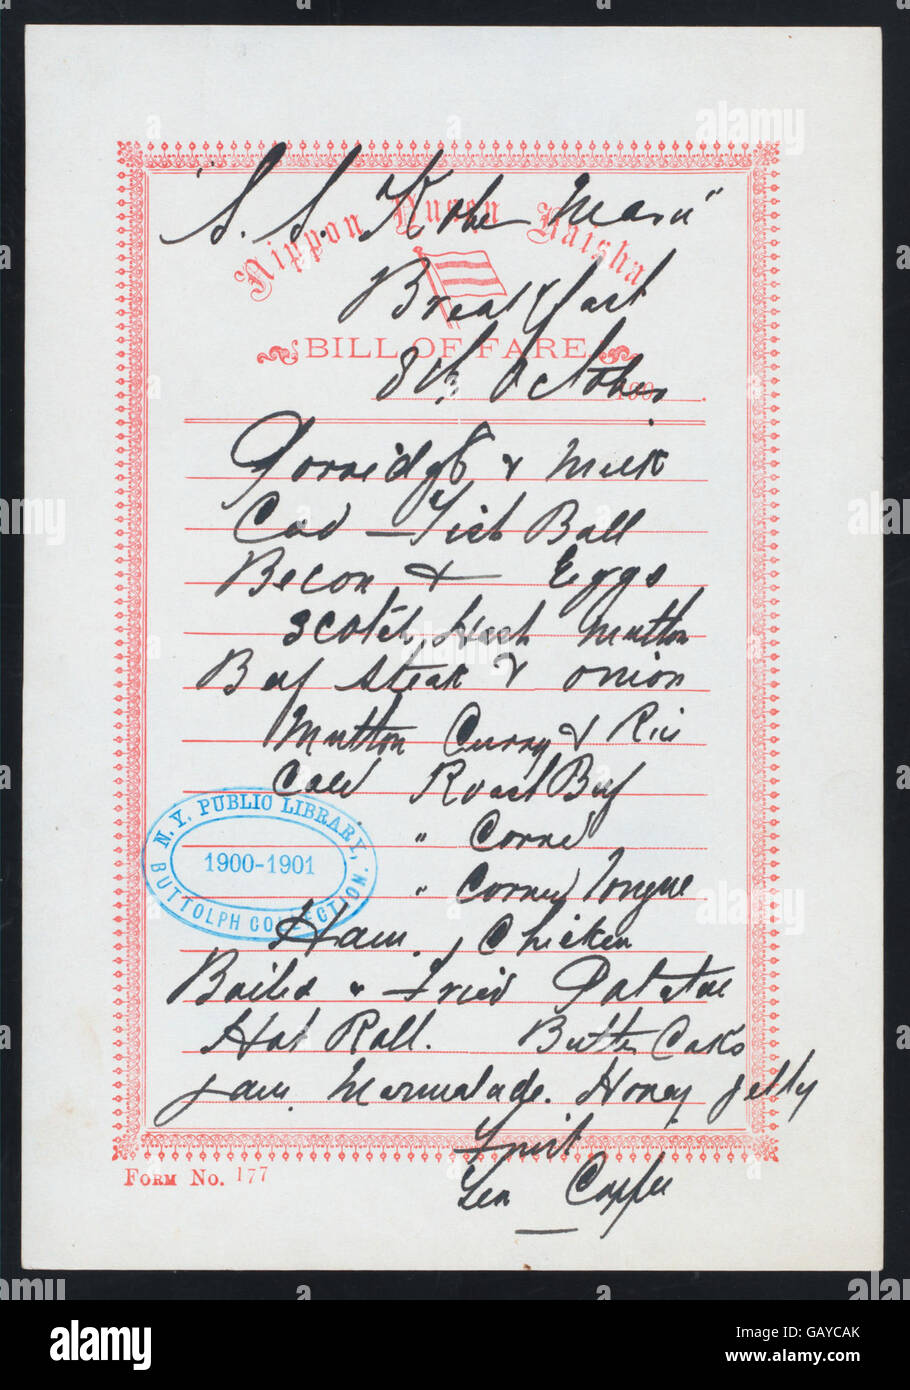 "S. S. Kobe Maru"
Nippon Yusen Kaisha
Breakfast
BILL OF FARE
8th October 190
Porridge & Milk
Cod - Fish Ball
Becon & Eggs
Scotch Hash Mutton
Beef Steak & onion
Mutton Curry & Rice
Cold Roast Beef
" Corne
" Corned Tongue
N. Y. PUBLIC LIBRARY,
1900-1901
BUTTOLPH COLLECTION.
Ham, Chicken
Boiled " Fried Potatoe
Hot Roll. Butter Cake
Jam. Marmalade. Honey Jelly
Fruit
Tea Coffee
FORM No. 177
alamy
alamy
Image ID: GAYCAK
www.alamy.com